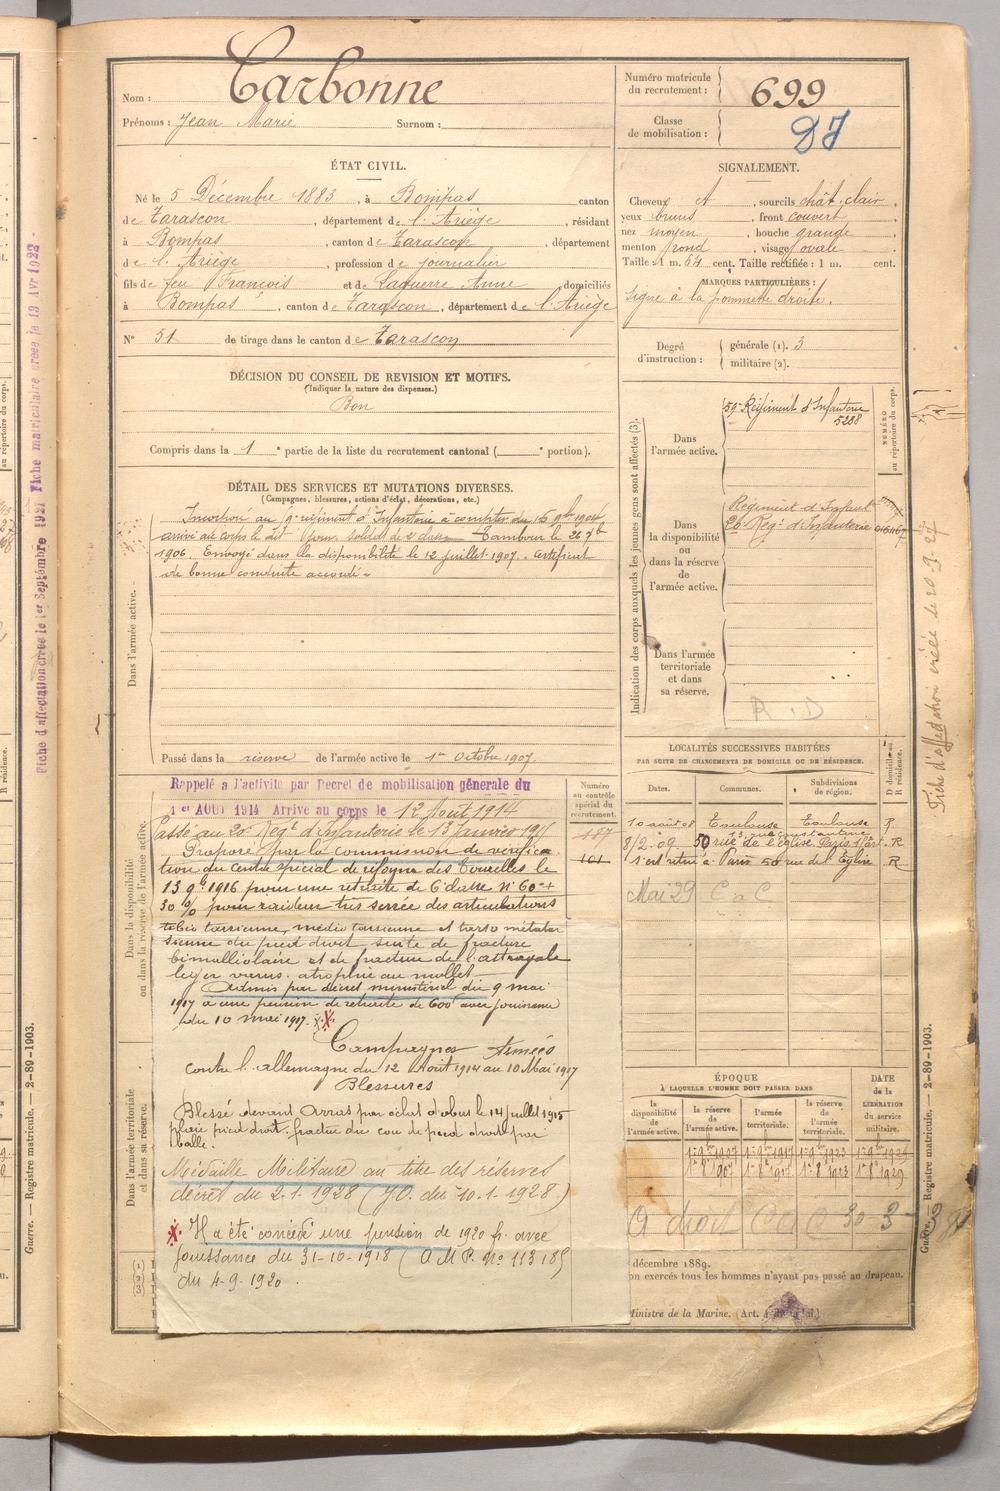 Nom : Carbonne
Prénoms : Jean Marie Surnom :
Numéro matricule du recrutement : 699
Classe de mobilisation :
ÉTAT CIVIL.
Né le 5 Décembre 1883, à Bompas canton
de Tarascon, département de l'Ariège, résidant
à Bompas, canton de Tarascon, département
de l'Ariège, profession de journalier
fils de feu François et de Laguerre Anne domiciliés
à Bompas, canton de Tarascon, département de l'Ariège
N° 51 de tirage dans le canton de Tarascon
SIGNALEMENT.
Cheveux et, sourcils chât. clair,
yeux bruns, front couvert
nez moyen, bouche grande
menton rond, visage ovale
Taille : 1 m. 64 cent. Taille rectifiée : 1 m. cent.
MARQUES PARTICULIÈRES :
Signe à la pommette droite.
Degré d'instruction : générale (1). 3
militaire (2).
DÉCISION DU CONSEIL DE REVISION ET MOTIFS.
(Indiquer la nature des dispenses.)
Bon
Compris dans la 1e partie de la liste du recrutement cantonal (e portion).
DÉTAIL DES SERVICES ET MUTATIONS DIVERSES.
(Campagnes, blessures, actions d'éclat, décorations, etc.)
Dans l'armée active.
Incorporé au 59e régiment d'Infanterie à compter du 1904
arrivé au corps le dit jour soldat de 2e classe Tambour le 26 7bre
1906. Envoyé dans la disponibilité le 12 juillet 1907. Certificat
de bonne conduite accordé.
Passé dans la réserve de l'armée active le 1er Octobre 1907.
Indication des corps auxquels les jeunes gens sont affectés (3).
NUMÉRO au répertoire du corps.
Dans l'armée active.
59e Régiment d'Infanterie
5288
Dans la disponibilité ou dans la réserve de l'armée active.
Régiment d'Infant
20e Régt d'Infanterie
Dans l'armée territoriale et dans sa réserve.
R. D
Dans la disponibilité ou dans la réserve de l'armée active.
Rappelé a l'activité par Decret de mobilisation générale du
1er AOUT 1914 Arrive au corps le 12 Aout 1914
Passé au 20e Régt d'Infanterie le 13 Janvier 191
Proposé par la commission de vérifica
tion du centre spécial de réforme des Tourelles le
13 9bre 1916 pour une retraite de 6e classe N° 60 +
30 % pour raideur très serrée des articulations
tibio tarsienne, médio tarsienne et tarso métatar
sienne du pied droit suite de fracture
bimalléolaire et de fracture de l'astragale
léger varus. atrophie au mollet
Admis par décret ministériel du 9 mai
1917 à une pension de retraite de 600 avec jouissance
du 10 mai 1917.
Numéro au contrôle spécial du recrutement.
187
101
Campagnes
contre l'allemagne du 12 Août 1914 au 10 Mai 1917
Blessures
Blessé devant Arras par éclat d'obus le 14 juillet 1915
plaie pied droit. fracture du cou de pied droit par
balle.
Dans l'armée territoriale et dans sa réserve.
Médaille Militaire au titre des réserves
décret du 2-1-1928 (J.O. du 10-1-1928.)
Il a été concédé une pension de 1920 fr. avec
jouissance du 31-10-1918 (A M P. N° 113 185
du 4-9-1920.
LOCALITÉS SUCCESSIVES HABITÉES
PAR SUITE DE CHANGEMENTS DE DOMICILE OU DE RÉSIDENCE.
Dates. Communes. Subdivisions de région. D domicile ou R résidence.
10 août 08 Toulouse Toulouse R
8/2.09 50 rue de l'église Paris R
s'est retiré à Paris 50 rue de l'Eglise R
Mai 29 C a C
ÉPOQUE
À LAQUELLE L'HOMME DOIT PASSER DANS
la disponibilité de l'armée active. la réserve de l'armée active. l'armée territoriale. la réserve de l'armée territoriale.
DATE de la LIBÉRATION du service militaire.
A droit
décembre 1889.
on exercés tous les hommes n'ayant pas passé au drapeau.
Ministre de la Marine. (Art.
(1)
(2)
(3)
Guerre. — Registre matricule. — 2-89-1903.
Guerre. — Registre matricule. — 2-89-1903.
Fiche d'affectation créée le 1er Septembre 1921 Fiche matriculaire créée le 19 Avr 1922
Fiche d'affectation créée le 20.9.27